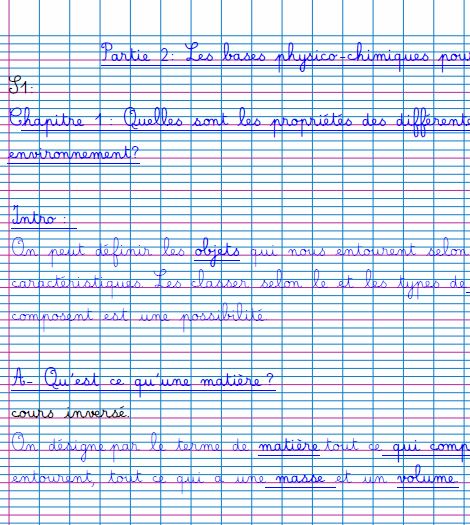 Partie 2: Les bases physico-chimiques pour
S1:
Chapitre 1 : Quelles sont les propriétés des différente
environnement?
Intro :
On peut définir les objets qui nous entourent selon
caractéristiques. Les classer selon le et les types de
composent est une possibilité.
A- Qu'est ce qu'une matière ?
cours inversé.
On désigne par le terme de matière tout ce qui comp
entourent, tout ce qui a une masse et un volume.